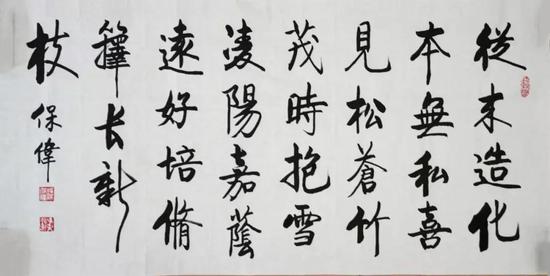 從来造化
本無私喜
見松蒼竹
茂時抱雪
淩陽嘉蔭
遠好培脩
籜长新
枝
保偉